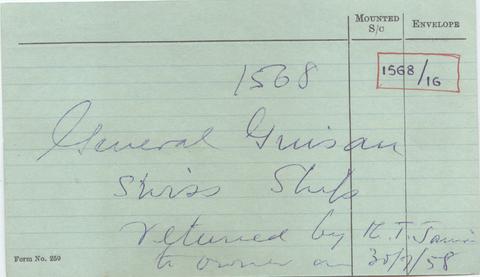 MOUNTED S/C
ENVELOPE
1568/16
1568
General Guisan
Swiss Ship
returned by K. T.
to owner on 30/7/58
Form No. 259